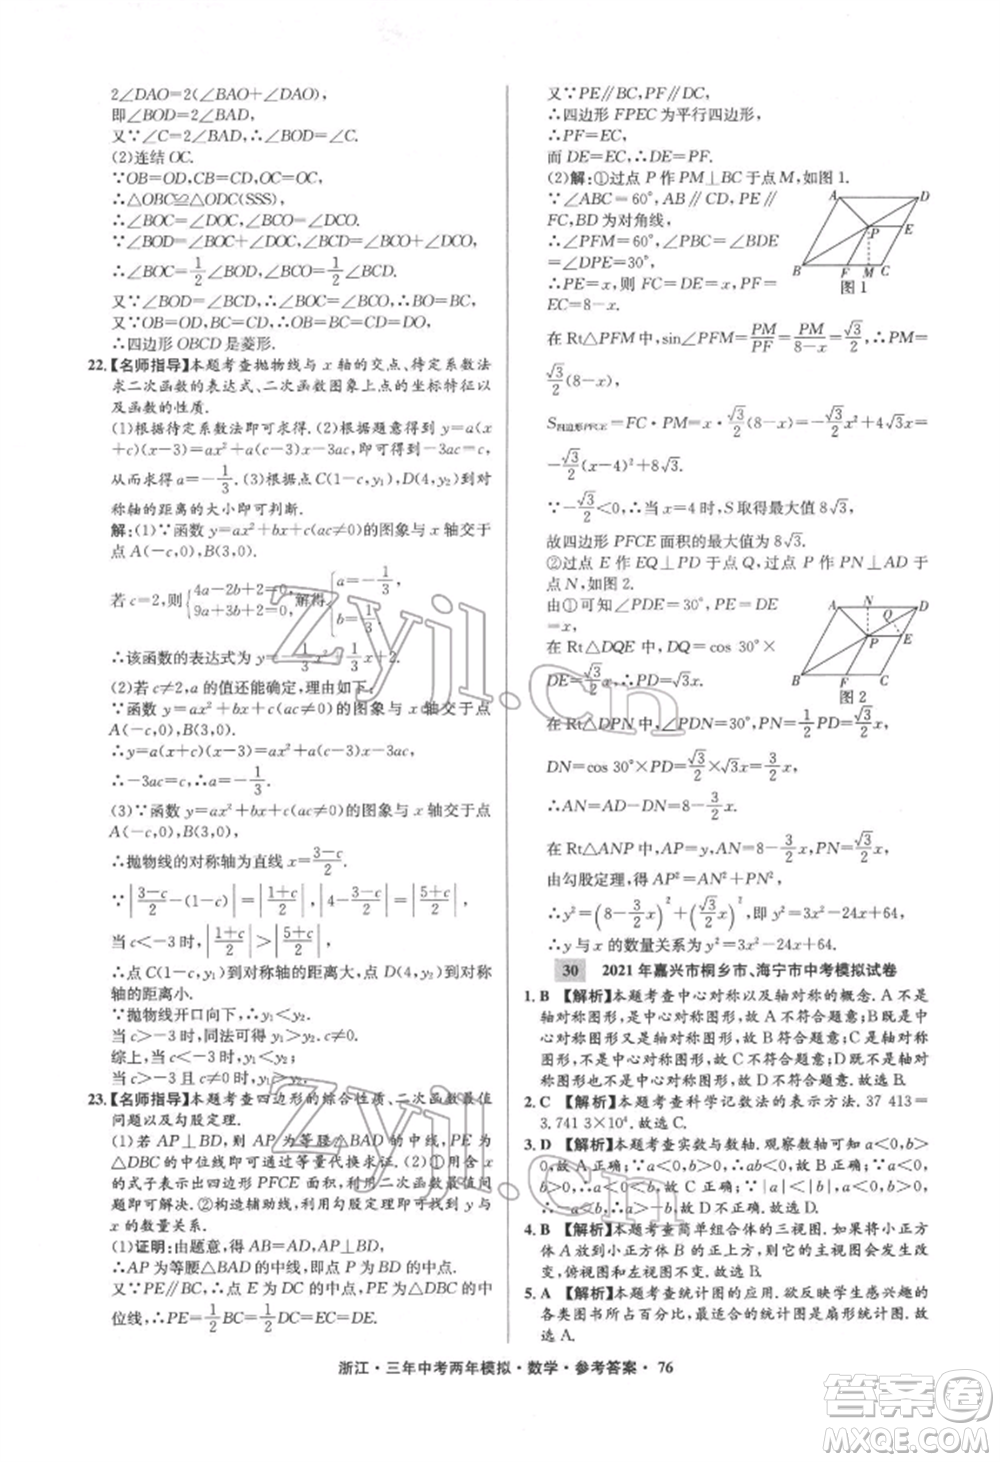 2∠DAO=2(∠BAO+∠DAO),
即∠BOD=2∠BAD.
又∵∠C=2∠BAD,∴∠BOD=∠C.
(2)连结 OC.
∵OB=OD,CB=CD,OC=OC,
∴△OBC≌△ODC(SSS),
∴∠BOC=∠DOC,∠BCO=∠DCO.
∵∠BOD=∠BOC+∠DOC,∠BCD=∠BCO+∠DCO,
∴∠BOC=1/2∠BOD,∠BCO=1/2∠BCD.
又∵∠BOD=∠BCD,∴∠BOC=∠BCO,∴BO=BC.
又∵OB=OD,BC=CD,∴OB=BC=CD=DO,
∴四边形 OBCD 是菱形.
22.【名师指导】本题考查抛物线与 x 轴的交点、待定系数法
求二次函数的表达式、二次函数图象上点的坐标特征以
及函数的性质.
(1)根据待定系数法即可求得.(2)根据题意得到 y=a(x
+c)(x-3)=ax²+bx+c(ac≠0),即可得到-3ac=c,
从而求得 a=-1/3.(3)根据 C(1-c,y₁),D(4,y₂)到对
称轴的距离的大小即可判断.
解:(1)∵函数 y=ax²+bx+c(ac≠0)的图象与 x 轴交于
点 A(-c,0),B(3,0).
若 c=2,则{4a-2b+2=0, 9a+3b+2=0,解得{a=-1/3, b=1/3,
∴该函数的表达式为 y=-1/3x²+1/3x+2.
(2)若 c≠2,a 的值还能确定,理由如下:
∵函数 y=ax²+bx+c(ac≠0)的图象与 x 轴交于点
A(-c,0),B(3,0).
∴y=a(x+c)(x-3)=ax²+bx+c(ac≠0),
∴-3ac=c,∴a=-1/3.
(3)∵函数 y=ax²+bx+c(ac≠0)的图象与 x 轴交于
点 A(-c,0),B(3,0),
∴抛物线的对称轴为直线 x=(3-c)/2.
∵|(3-c)/2-(1-c)|=|(1+c)/2|,|4-(3-c)/2|=|(5+c)/2|,
当 c<-3 时,|(1+c)/2|>|(5+c)/2|,
∵抛物线开口向下,∴y₁<y₂.
当 c>-3 时,同法可得 y₁>y₂.c≠0.
综上,当 c<-3 时,y₁<y₂;
当 c>-3 且 c≠0 时,y₁>y₂.
23.【名师指导】本题考查四边形的综合性质、二次函数最值
问题以及勾股定理.
(1)若 AP⊥BD,则 AP 为等腰△BAD 的中线,PE 为
△DBC 的中位线即可通过等量代换求证.(2)①用含 x
的式子表示出四边形 PFCE 面积,利用二次函数最值问
题即可解决.②构造辅助线,利用勾股定理即可求出 y 与
x 的数量关系.
(1)证明:由题意,得 AB=AD,AP⊥BD,
∴AP 为等腰△BAD 的中线,即点 P 为 BD 的中点.
又∵PE∥BC,∴点 E 为 DC 的中点,∴PE 为△DBC 的中
位线,∴PE=1/2BC=1/2DC=DE.
又∵PE∥BC,PF∥DC,
∴四边形 FPEC 为平行四边形,
∴PF=EC.
而 DE=EC,∴DE=PF.
(2)解:①过点 P 作 PM⊥BC 于点 M,如图 1.
∵∠ABC=60°,AB∥CD,PF∥
FC,BD 为对角线,
∴∠PFM=60°,∠PBC=∠BDE
=∠DPE=30°.
∴PE=x,则 FC=DE=x,PF=
EC=8-x.
在 Rt△PFM 中,sin∠PFM=PM/PF=PM/(8-x)=√3/2,∴PM=
√3/2(8-x).
S四边形PFCE=FC·PM=x·√3/2(8-x)=-√3/2(x²-8x)=
-√3/2(x-4)²+8√3.
∵-√3/2<0,∴当 x=4 时,S 取得最大值 8√3.
故四边形 PFCE 面积的最大值为 8√3.
②过点 E 作 EQ⊥PD 于点 Q,过点 P 作 PN⊥AD 于
点 N,如图 2.
由①可知∠PDE=30°,PE=
DE=x,
在 Rt△DQE 中,DQ=cos 30°×
DE=√3/2x,∴PD=√3x.
在 Rt△DPN 中,∠PDN=30°,PN=1/2PD=√3/2x,
DN=cos 30°×PD=√3/2×√3x=3/2x.
∴AN=AD-DN=8-3/2x.
在 Rt△ANP 中,AP=y,AN=8-3/2x,PN=√3/2x,
由勾股定理,得 AP²=AN²+PN²,
∴y²=(8-3/2x)²+(√3/2x)²,即 y²=3x²-24x+64,
∴y 与 x 的数量关系为 y²=3x²-24x+64.
A D P E B F M C
图 1
A N D Q P E B F C
图 2
30 2021 年嘉兴市桐乡市、海宁市中考模拟试卷
1. B 【解析】本题考查中心对称以及轴对称的概念. A 不是
轴对称图形,是中心对称图形,故 A 不符合题意;B 既是中
心对称图形又是轴对称图形,故 B 符合题意;C 是轴对称
图形,不是中心对称图形,故 C 不符合题意;D 不是轴对
称图形,也不是中心对称图形,故 D 不符合题意. 故选 B.
2. C 【解析】本题考查科学记数法的表示方法. 37 413=
3.741 3×10⁴. 故选 C.
3. D 【解析】本题考查实数与数轴. 观察数轴可知 a<0,b>
0,故 A 错误;∵a<0,b>0,∴a<b,故 B 错误;∵a<0,b>
0,∴ab<0,故 C 错误;∵|a|<|b|,a<0,b>0,∴a+b>
0,∴-a<b,故 D 正确. 故选 D.
4. B 【解析】本题考查简单组合体的三视图. 若将小正方
体 A 放到小正方体 B 的正上方,则它的主视图会发生改
变,俯视图和左视图不变. 故选 B.
5. A 【解析】本题考查统计图的应用. 欲反映学生感兴趣的
各类图书所占百分比,最适合的统计图是扇形统计图. 故
选 A.
浙江·三年中考两年模拟·数学·参考答案·76
Zyjl.Cn
Zyjl.Cn
答案圈
MXQE.COM